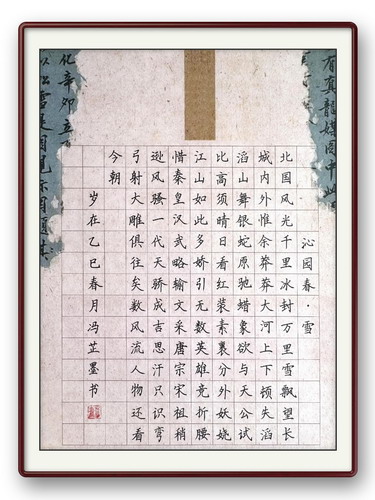 有真龍媒
沁园春·雪
北国风光千里冰封万里雪飘望长
城内外惟余莽莽大河上下顿失滔
滔山舞银蛇原驰蜡象欲与天公试
比高须晴日看红装素裹分外妖娆
江山如此多娇引无数英雄竞折腰
惜秦皇汉武略输文采唐宗宋祖稍
逊风骚一代天骄成吉思汗只识弯
弓射大雕俱往矣数风流人物还看
今朝
岁在乙巳春月冯芷墨书
化辛卯立
以松雪是图见示因题其